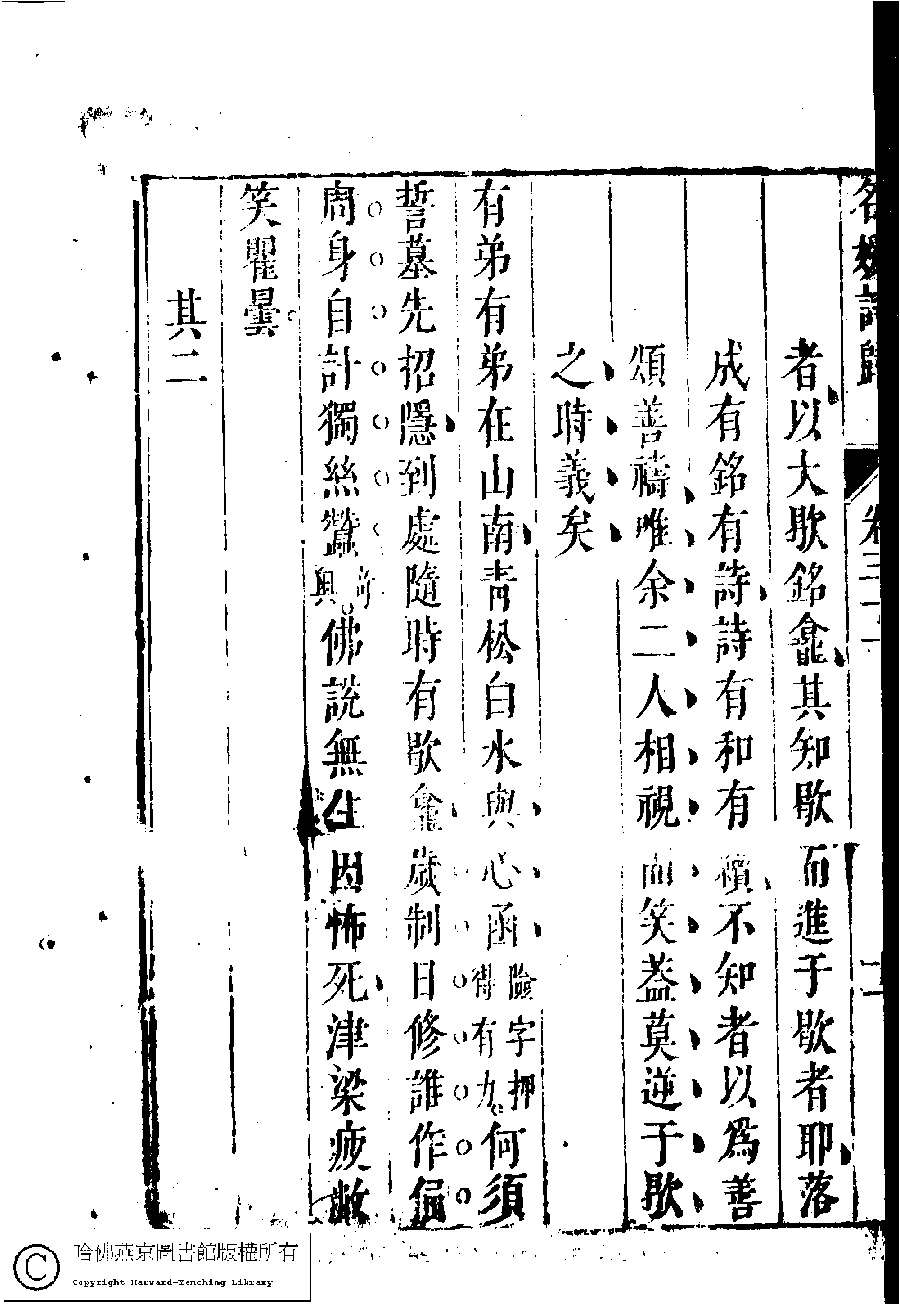 名媛詩歸 卷三
者以大歇銘龕其知歇而進于歇者耶落
成有銘有詩詩有和有不知者以爲善
頌善禱唯余二人相視而笑葢莫逆于歇
之時義矣
有弟有弟在山南青松白水與心函險字押得有力何須
誓墓先招隱到處隨時有歇龕歲制日修誰作
周身自計獨絲蠶奇奧佛說無生因怖死津梁疲敝
笑瞿曇
其二
哈佛燕京圖書館版權所有
Copyright Harvard-Yenching Library